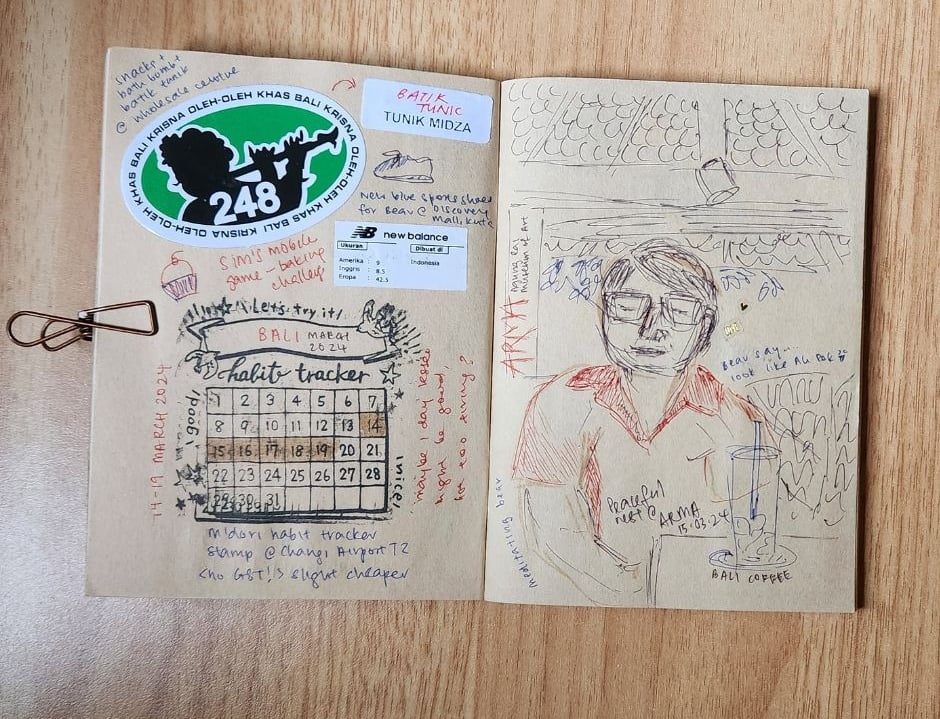 snacks +
bath bombs +
batik tunik
@ wholesale centre
KRISNA OLEH-OLEH KHAS BALI KRISNA OLEH-OLEH KHAS BALI KRISNA OLEH-OLEH KHAS BALI
248
BATIK
TUNIC
TUNIK MIDZA
New blue sports shoes
for Bear @ Discovery
Mall, Kuta
NB new balance
Ukuran
Dibuat di
Amerika : 9
Indonesia
Inggris : 8.5
Eropa : 42.5
Sim's mobile
game - baking
challenge
Let's try it!
BALI MARCH
2024
habits tracker
1 2 3 4 5 6 7
8 9 10 11 12 13 14
15 16 17 18 19 20 21
22 23 24 25 26 27 28
29 30 31
good!
nice!
14-19 MARCH 2024
maybe 1 day lesser
might be good,
bit too tiring?
midori habit tracker
stamp @ Changi Airport T2
(no GST!) slight cheaper
ARMA
Agung Rai
Museum of Art
Bear say...
look like Ah Pek
Peaceful
rest @
ARMA
15.03.24
meditating bear
BALI COFFEE